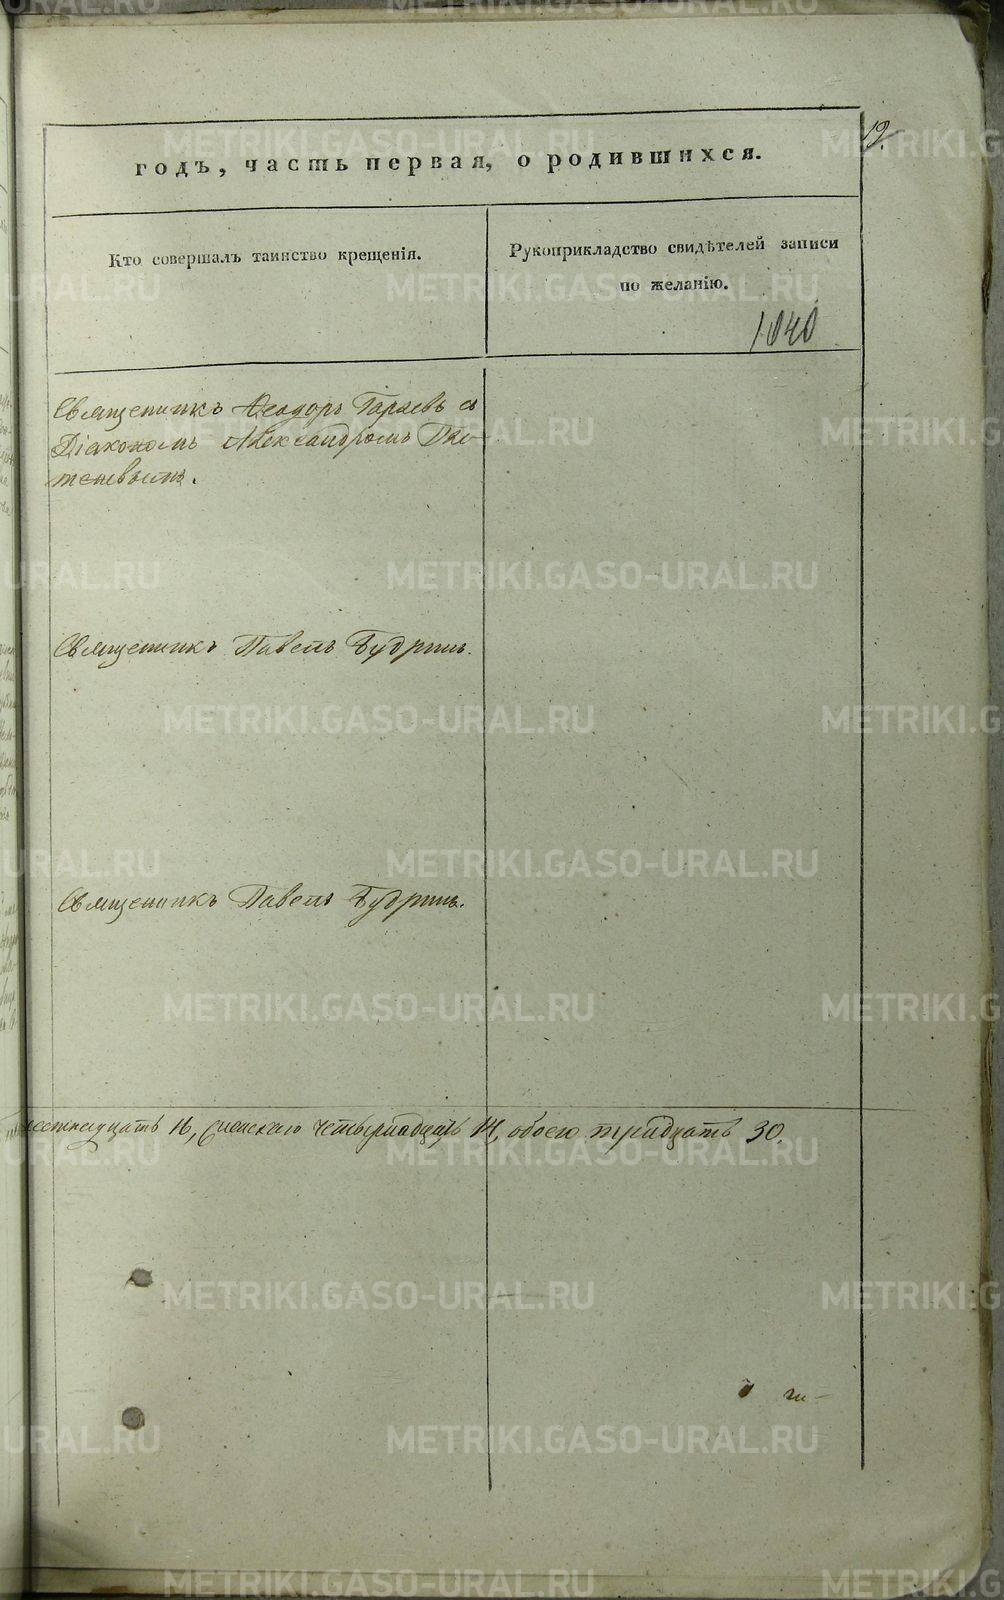 19.
годъ, часть первая, о родившихся.
Кто совершалъ таинство крещенія.
Рукоприкладство свидѣтелей записи
по желанію.
1040
Священникъ Ѳеодоръ Гаряевъ съ
Діакономъ Александромъ
Священникъ Павелъ Будринъ.
Священникъ Павелъ Будринъ.
шестнадцать 16, женскаго четырнадцать 14, обоего тридцать 30.
METRIKI.GASO-URAL.RU